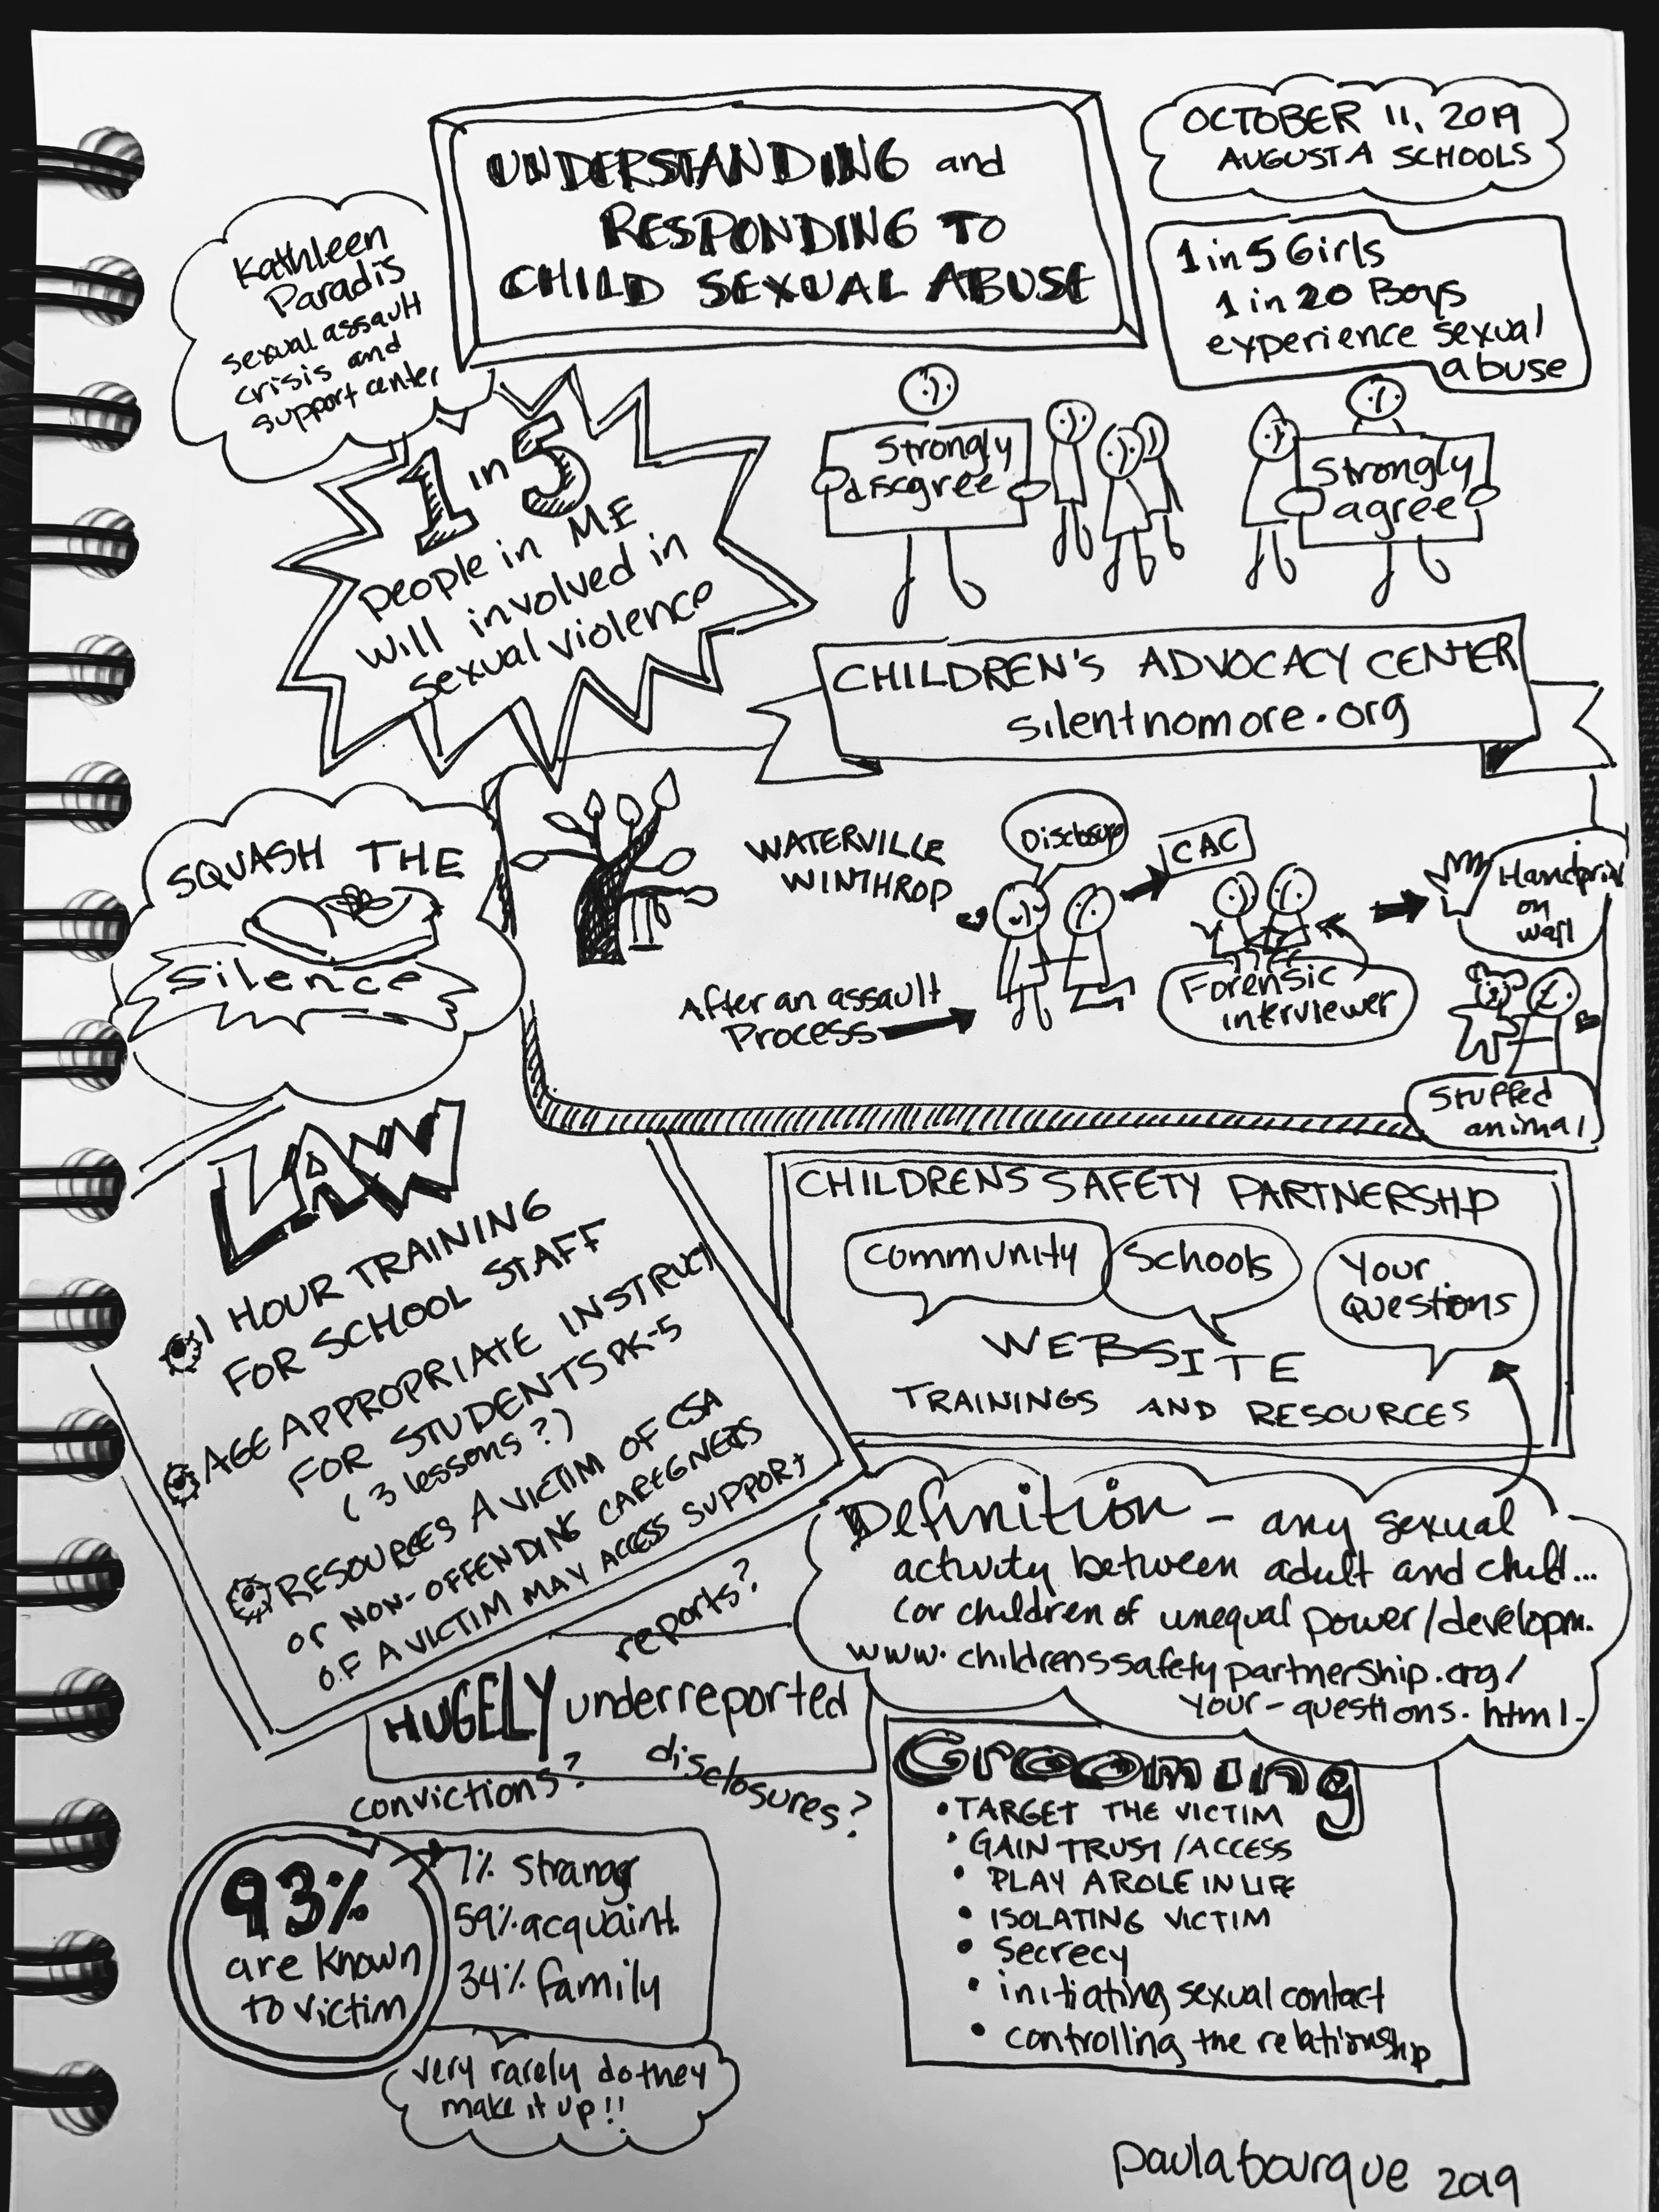 UNDERSTANDING and
RESPONDING TO
CHILD SEXUAL ABUSE
OCTOBER 11, 2019
AUGUSTA SCHOOLS
Kathleen
Paradis
sexual assault
crisis and
support center
1 in 5 Girls
1 in 20 Boys
experience sexual
abuse
1 in 5
people in ME
will involved in
sexual violence
Strongly
disagree
Strongly
agree
CHILDREN'S ADVOCACY CENTER
silentnomore.org
SQUASH THE
Silence
WATERVILLE
WINTHROP
Disclosure
CAC
Handprint
on
wall
After an assault
Process
Forensic
interviewer
Stuffed
animal
LAW
1 HOUR TRAINING
FOR SCHOOL STAFF
AGE APPROPRIATE INSTRUCT
FOR STUDENTS PK-5
(3 lessons?)
RESOURCES A VICTIM OF CSA
or NON-OFFENDING CAREGIVERS
OF A VICTIM MAY ACCESS SUPPORT
CHILDRENS SAFETY PARTNERSHIP
Community
Schools
Your
Questions
WEBSITE
TRAININGS AND RESOURCES
Definition - any sexual
activity between adult and child...
(or children of unequal power/developm.
www.childrenssafetypartnership.org/
your-questions.html.
reports?
HUGELY underreported
convictions?
disclosures?
93%
are known
to victim
7% strangr
59% acquaint.
34% family
very rarely do they
make it up!!
Grooming
• TARGET THE VICTIM
• GAIN TRUST/ACCESS
• PLAY A ROLE IN LIFE
• ISOLATING VICTIM
• Secrecy
• initiating sexual contact
• controlling the relationship
paulabourque 2019